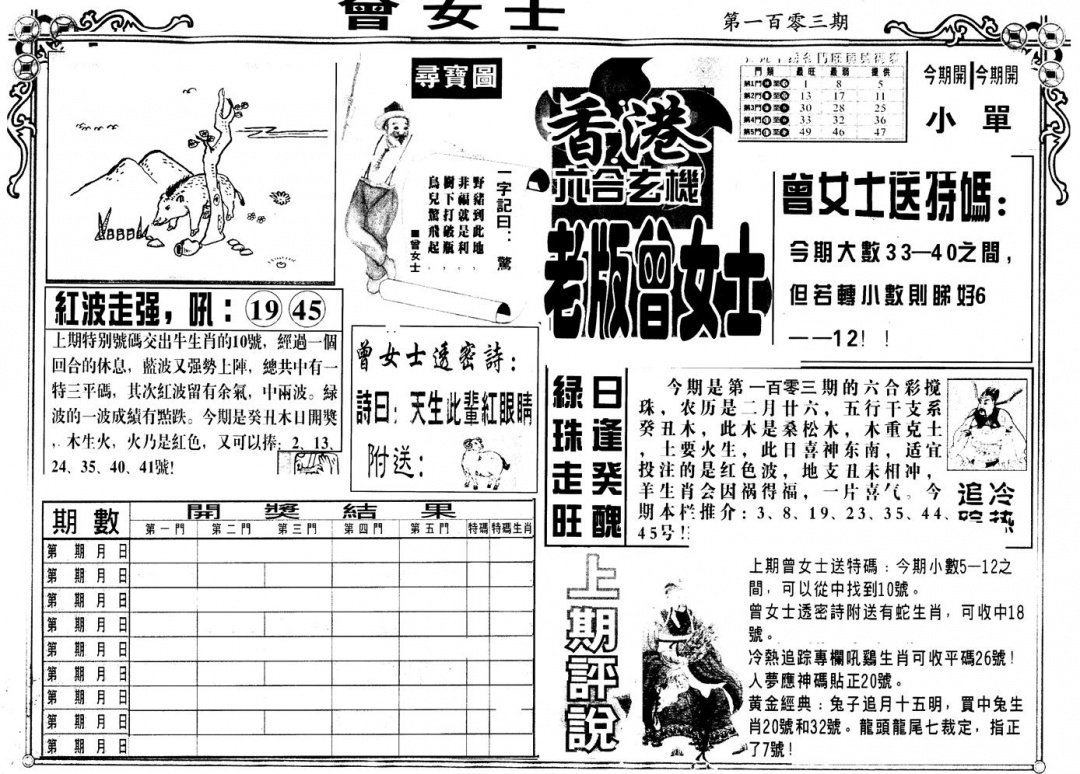 曾女士
第一百零三期
尋寶圖
一字記曰：驚
野豬到此地，
非福就是利，
樹下打破瓶，
鳥兒驚飛起。
■曾女士
香港
六合玄機
老版曾女士
門類 最旺 最弱 提供
第1門 至 1 8 5
第2門 至 13 17 11
第3門 至 30 28 25
第4門 至 33 32 36
第5門 至 49 46 47
今期開 今期開
小 單
曾女士送特碼：
今期大數33—40之間，
但若轉小數則睇好6
——12！！
紅波走强，吼：19 45
上期特別號碼交出牛生肖的10號，經過一個
回合的休息，藍波又强勢上陣，總共中有一
特三平碼，其次紅波留有余氣，中兩波。緑
波的一波成績有點跌。今期是癸丑木日開獎
，木生火，火乃是紅色，又可以捧：2、13、
24、35、40、41號！
曾女士透密詩：
詩曰：天生此輩紅眼睛
附送：
日逢癸醜
綠珠走旺
今期是第一百零三期的六合彩搅
珠，农历是二月廿六，五行干支系
癸丑木，此木是桑松木，木重克土
，土要火生，此日喜神东南，适宜
投注的是红色波，地支丑未相冲，
羊生肖会因祸得福，一片喜气。今
期本栏推介：3、8、19、23、35、44、
45号！！
冷热
追踪
期數 開獎結果
第一門 第二門 第三門 第四門 第五門 特碼 特碼生肖
第 期 月 日
第 期 月 日
第 期 月 日
第 期 月 日
第 期 月 日
第 期 月 日
第 期 月 日
第 期 月 日
第 期 月 日
上期評說
上期曾女士送特碼：今期小數5—12之
間，可以從中找到10號。
曾女士透密詩附送有蛇生肖，可收中18
號。
冷熱追踪專欄吼鷄生肖可收平碼26號！
人夢應神碼貼正20號。
黃金經典：兔子追月十五明，買中兔生
肖20號和32號。龍頭龍尾七裁定，指正
了7號！